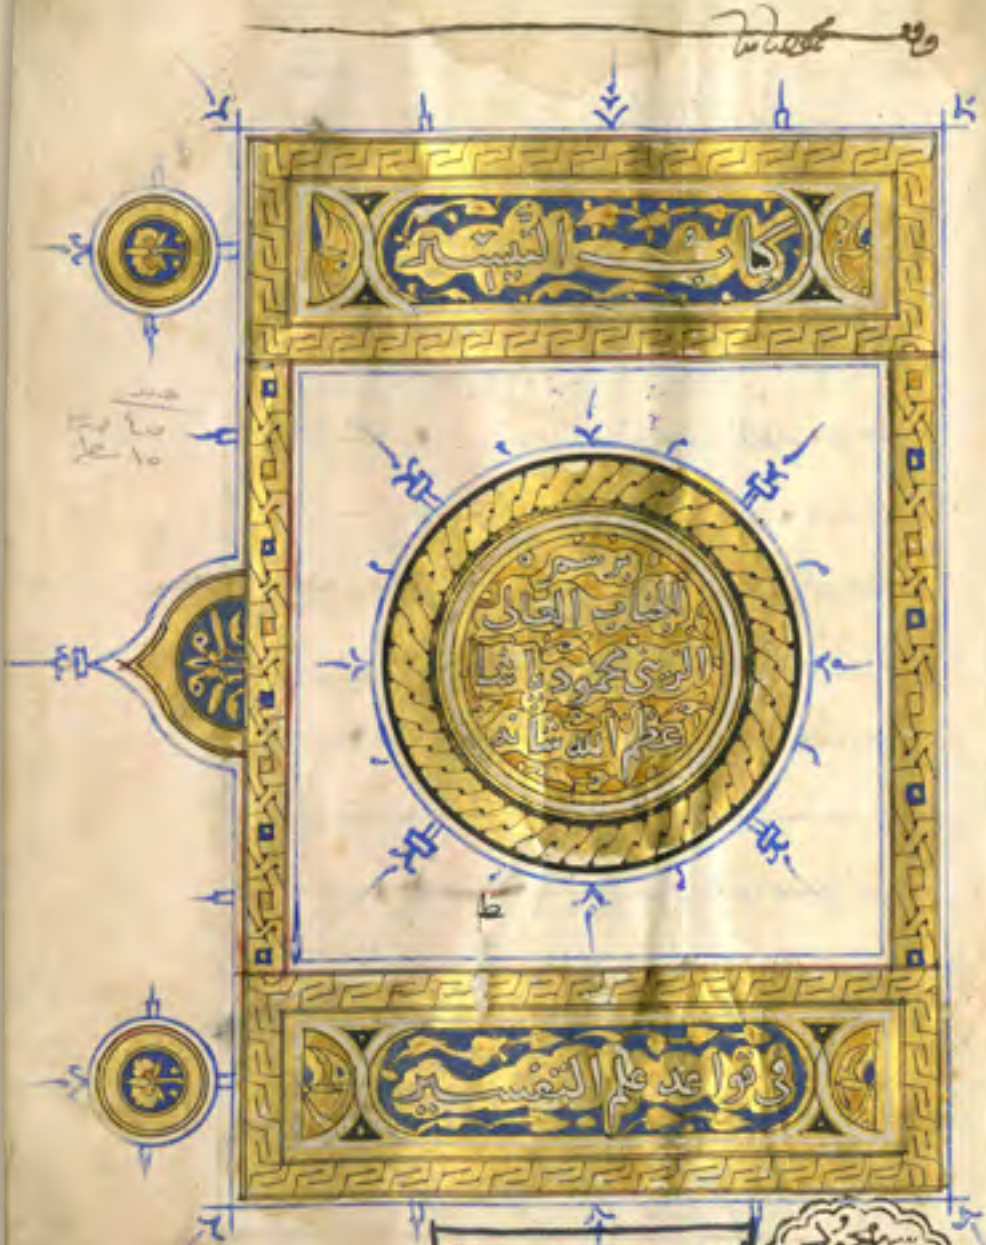 كتاب التَّيسير
برسم
الجناب العالى
الزينى محمود باشا
عظم الله شانه
ط
فى قواعد علم التفسير